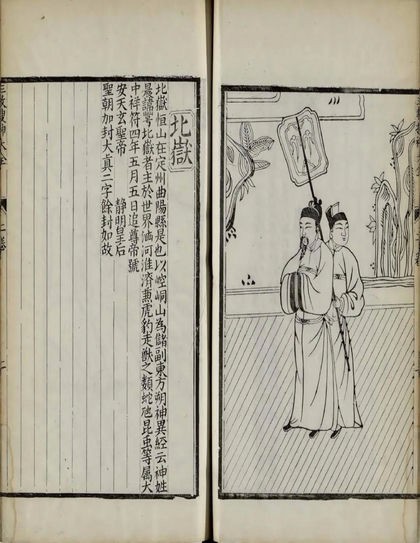 北嶽
北嶽恒山在定州曲陽縣是也以崆峒山為儲副東方朔神異經云神姓
晨諱萼北嶽者主於世界江河淮濟兼虎豹走獸之類蛇虺昆虫等属大
中祥符四年五月五日追尊帝號
安天玄聖帝　靜明皇后
聖朝加封大真二字餘封如故